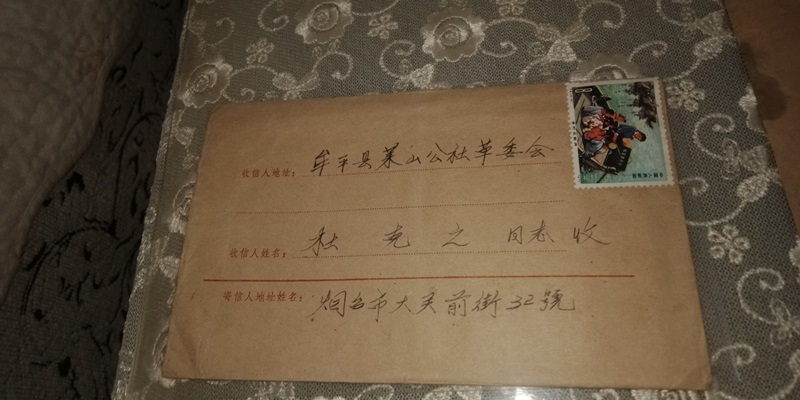 收信人地址：牟平县莱山公社革委会
收信人姓名：秋克之 同志 收
寄信人地址姓名：烟台市大关前街32號